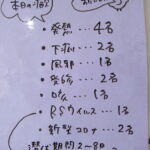 本日の
・発熱…4名
・下痢…2名
・風邪…1名
・受診…2名
・咳…1名
・RSウイルス…1名
・新型コロナ…2名
潜伏期間2〜8日